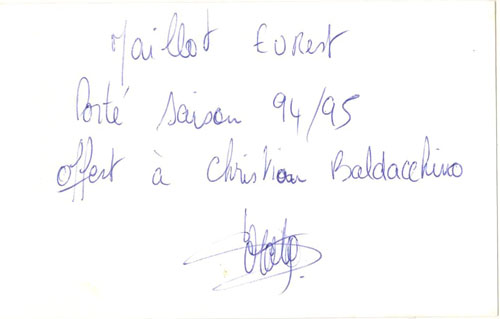 Maillot EVRest
Porté saison 94/95
offert à Christian Baldacchino